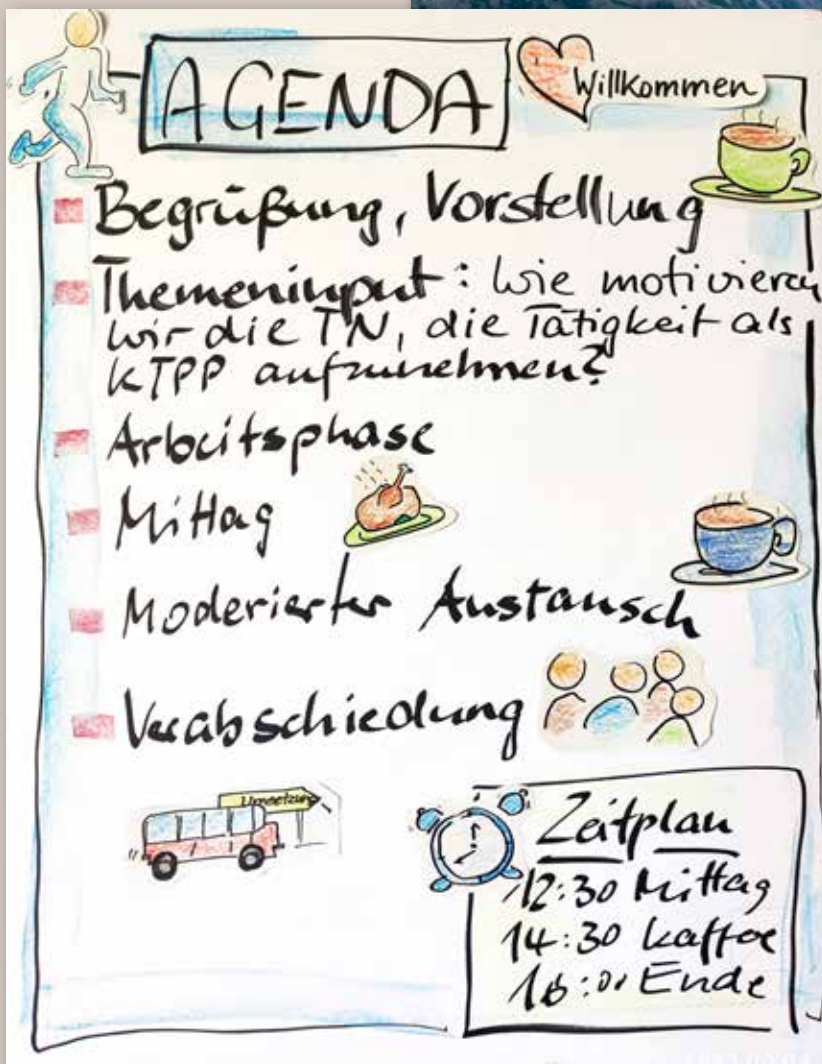 AGENDA
Willkommen
Begrüßung, Vorstellung
Themeninput: Wie motivieren
wir die TN, die Tätigkeit als
KTPP aufzunehmen?
Arbeitsphase
Mittag
Moderierter Austausch
Verabschiedung
Umsetzung
Zeitplan
12:30 Mittag
14:30 Kaffee
Ende